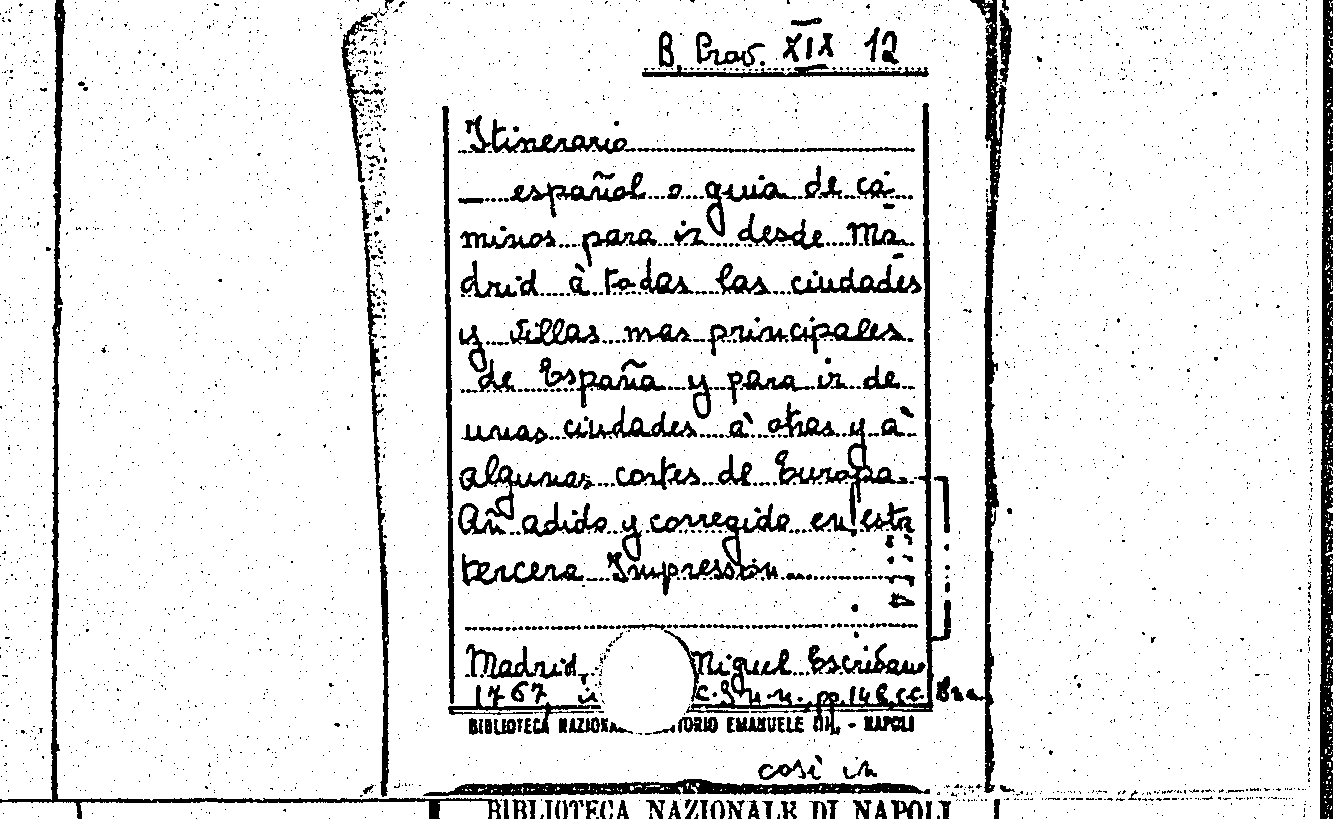 B. Prov. XIX 12
Itinerario
— español o guia de ca-
minos para ir desde Ma-
drid à todas las ciudades
y Villas mas principales
de España y para ir de
unas ciudades à otras y à
algunas cortes de Europa.
Añadido y corregido en esta
tercera Impression
Madrid, Miguel Escribano
1767, pp. 148,
BIBLIOTECA EMANUELE III. - NAPOLI
così in
BIBLIOTECA NAZIONALE DI NAPOLI